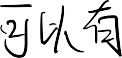 可以有